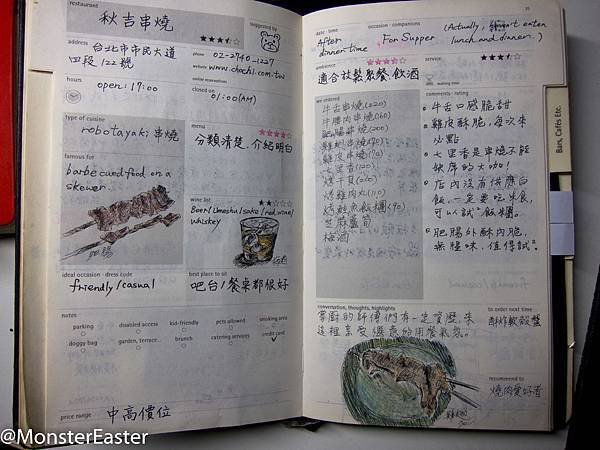 restaurant
秋吉串燒
suggested by
address
台北市市民大道
四段 122 號
phone 02-2740-1227
website www.chochi.com.tw
online reservations
hours
open: 17:00
closed on
01:00(AM)
type of cuisine
robotayaki 串燒
menu
分類清楚、介紹明白
famous for
barbecued food on a
skewer.
wine list
Beer/Umeshu/sake/red wine/
whiskey
ideal occasion · dress code
friendly/casual
best place to sit
吧台/餐桌都很好
notes
parking
disabled access
kid-friendly
pets allowed
smoking area
doggy bag
garden, terrace...
brunch
catering services
credit card
price range
中高價位
date · time
After
dinner time
occasion · companions
For Supper
(Actually, haven't eaten
lunch and dinner.)
ambience
適合社髮聚餐、飲酒
service
we ordered
牛舌串燒(220)
雞皮串燒
七里香(120)
芝麻蘆筍
梅酒
comments · rating
牛舌口感脆甜
雞皮酥脆,每次來
必點
七里香是串燒不能
缺席的大咖!
店內沒有供應白
飯,一定要吃米食,
可以試試飯糰。
肥腸外酥內脆,
無腥味,值得試試。
Bars, Cafés Etc.
conversation, thoughts, highlights
掌廚的師傅們有一定資歷,來
這裡享受優惠的用餐氣氛。
to order next time
酥炸軟殼蟹
recommended to
燒肉愛好者
@MonsterEaster